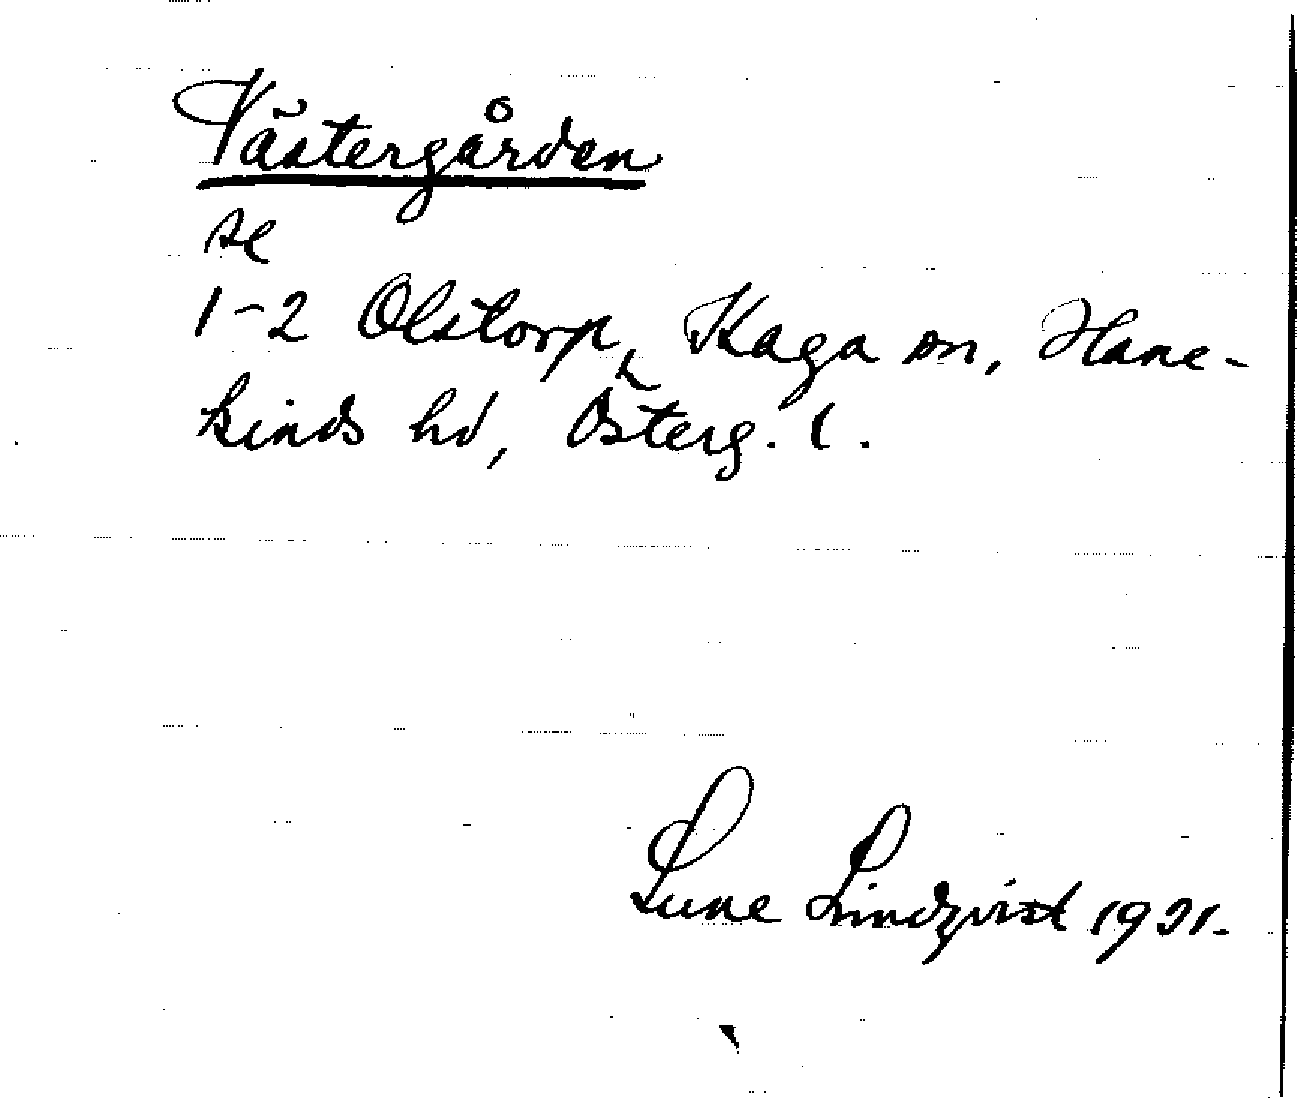 Västergården
se
1-2 Olstorp, Kaga sn, Hane-
kinds hd, Österg. l.
Sune Lindqvist 1921.